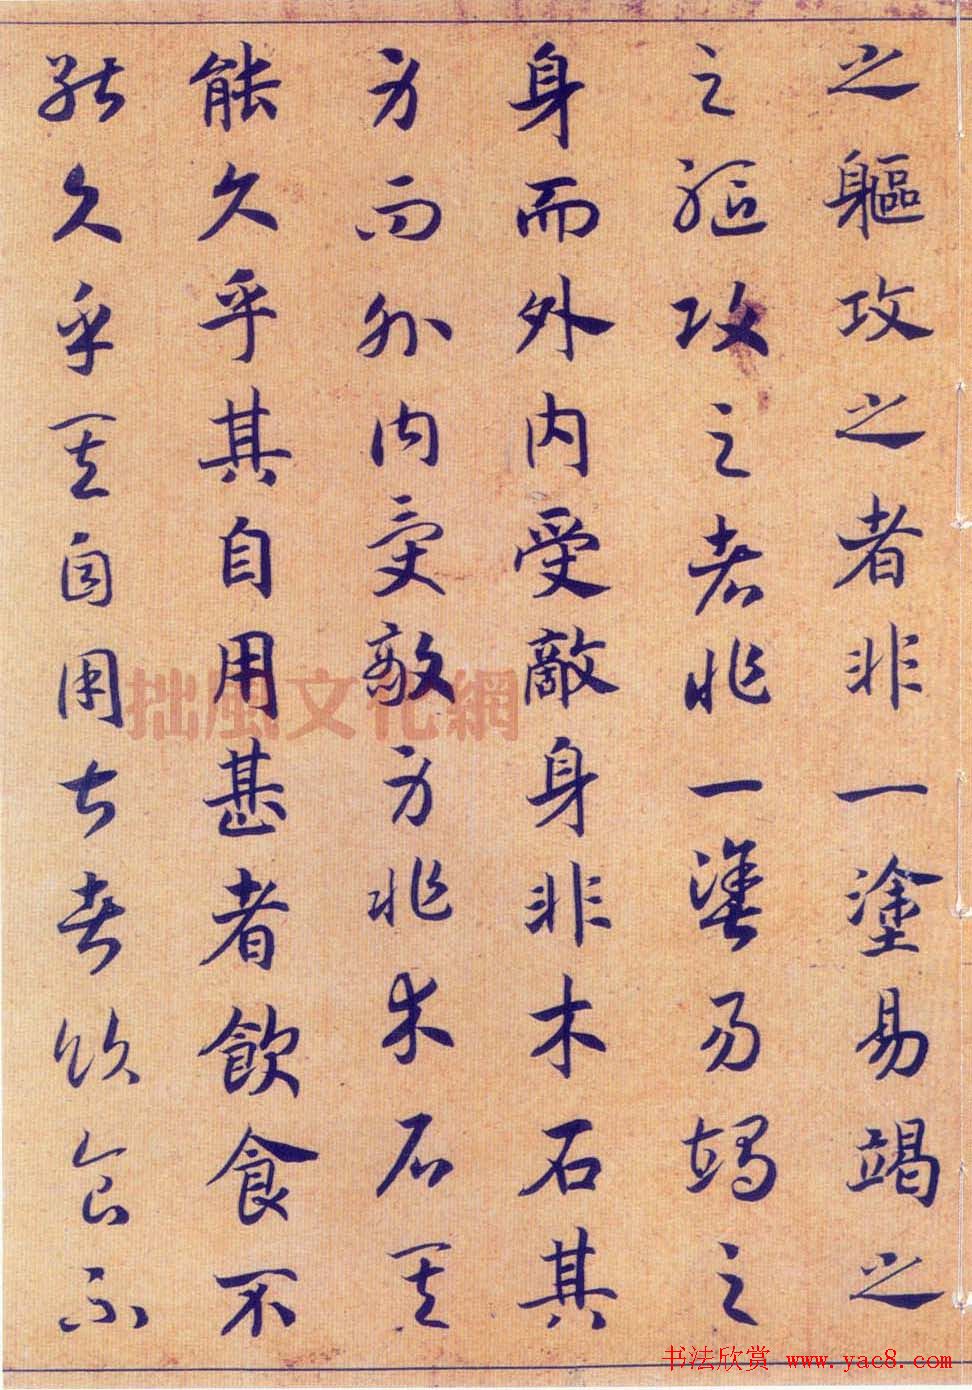 之軀攻之者非一塗易竭之
之軀攻之者非一塗易竭之
身而外內受敵身非木石其
身而外內受敵身非木石其
能久乎其自用甚者飲食不
能久乎其自用甚者飲食不
拙風文化網
书法欣赏 www.yac8.com